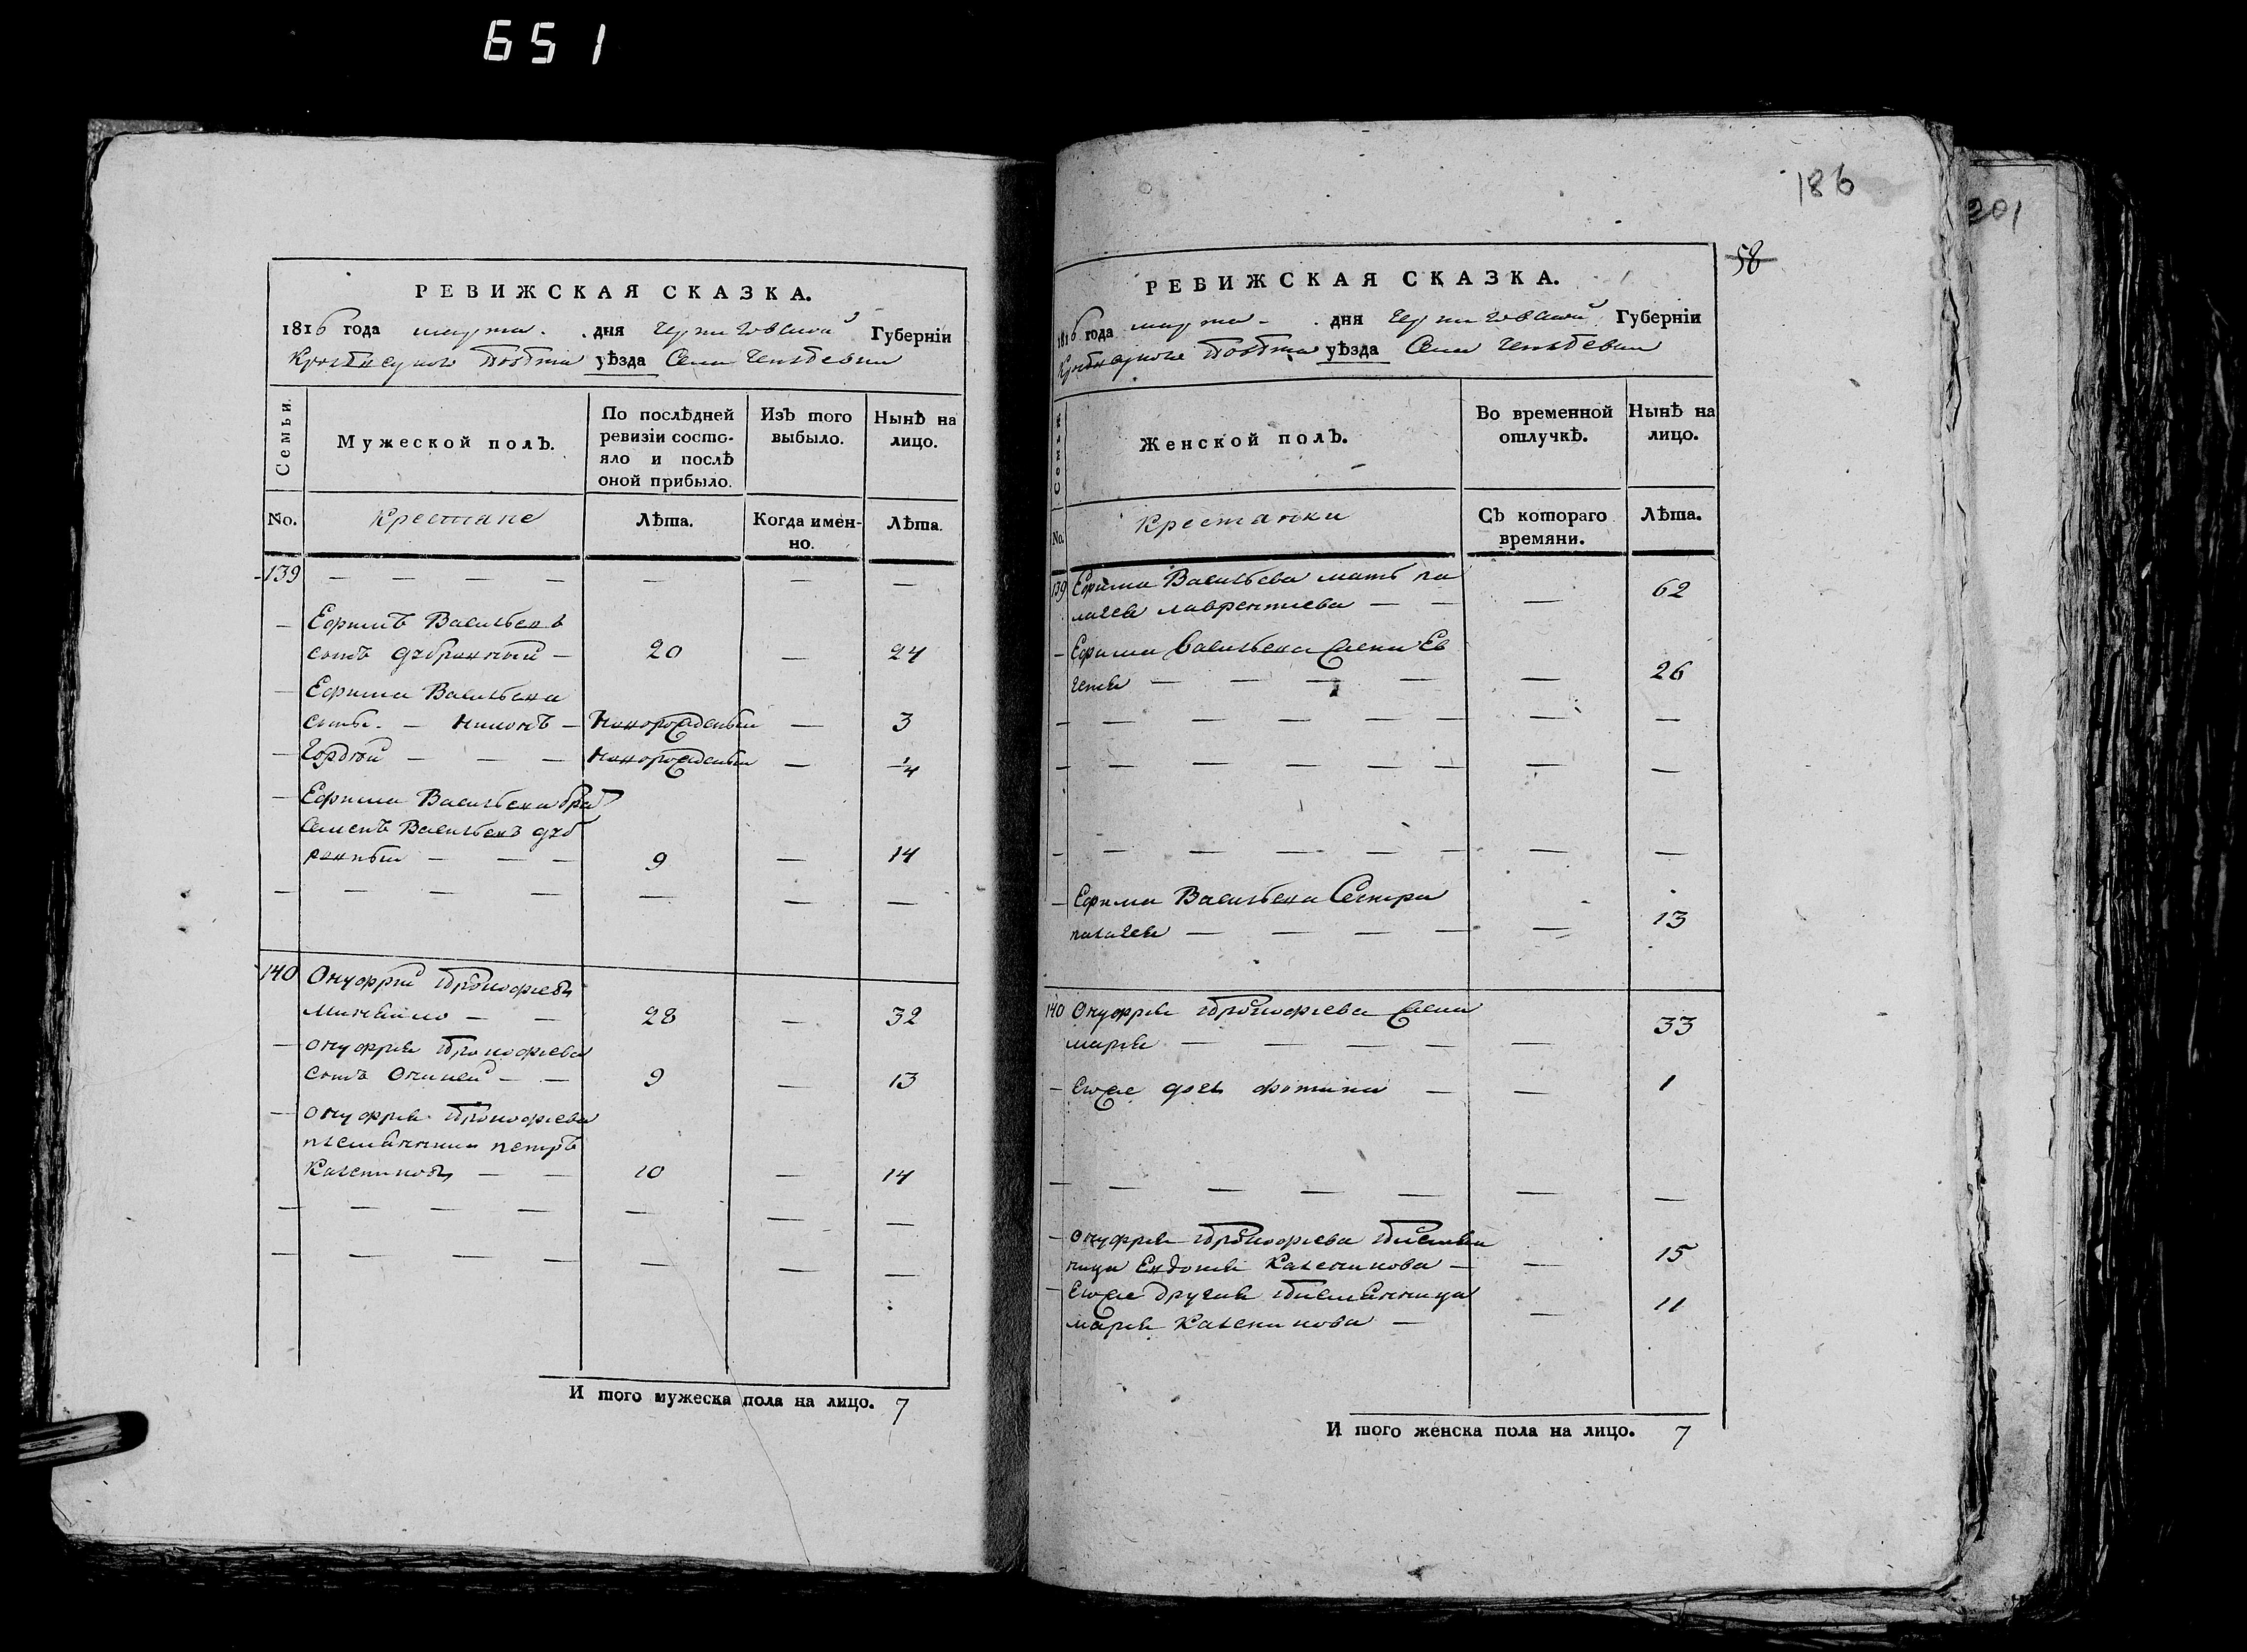 651
РЕВИЖСКАЯ СКАЗКА.
1816 года марта . дня Черниговской Губерніи
повѣта уѣзда Села
Семьи.
Мужеской полЪ.
По послѣдней ревизіи состояло и послѣ оной прибыло.
ИзЪ того выбыло.
НынѢ на лицо.
No.
Крестяне
Лѣта.
Когда именно.
Лѣта.
139 — — — — — — —
— Ефимъ Васильевъ
сынъ — 20 — 24
— Ефима Васильева
сынъ — — — 3
— Гордѣй — — — — 1/4
— Ефима Васильева бра
Семенъ Васильевъ
— — — 9 — 14
— — — — — — —
140 Онуфрій Прокофіевъ
Михайло — — 28 — 32
— Онуфрия Прокофиева
сынъ — — 9 — 13
— Онуфрия Прокофиева
племянникъ петръ
— — 10 — 14
— — — — — — —
— — — — — — —
И того мужеска пола на лицо. 7
186
201
58
РЕВИЖСКАЯ СКАЗКА.
1816 года марта . дня Черниговской Губерніи
повѣта уѣзда Села
Семьи
Женской полЪ.
Во временной отлучкѢ.
НынѢ на лицо.
No.
Крестянки
СЪ котораго времяни.
Лѣта.
139 Ефима Васильева мать па
лагея лаврентиева — — — 62
— Ефима Васильева жена Ев
гения — — — — — 26
— — — — — — — —
— — — — — — — —
— — — — — — — —
— Ефима Васильева Сестра
палагея — — — — — 13
140 Онуфрия Прокофиева жена
мария — — — — — 33
— Егоже дочь фотина — — 1
— — — — — — —
— Онуфрия Прокофиева племян
ница Евдокия — — 15
— Егоже другая племянница
мария — — 11
И того женска пола на лицо. 7